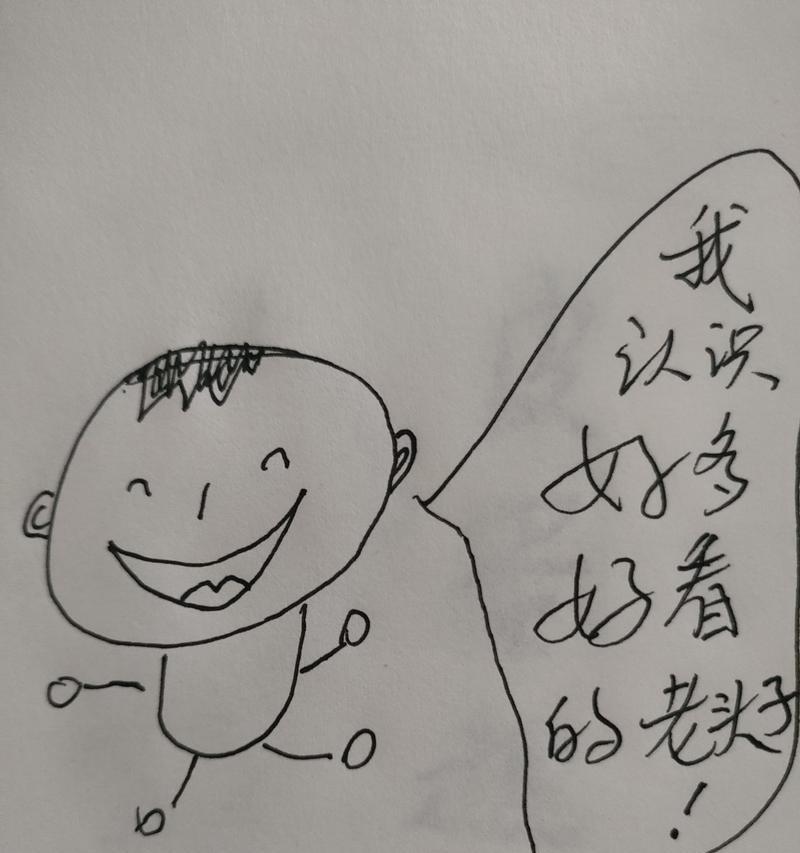 我
认识
好多
好看
的老头子
！